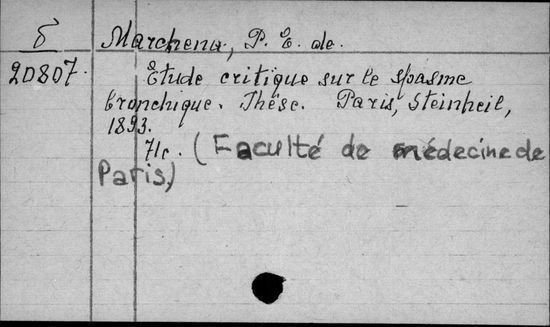 б Marchena, P. E. de.
20807. Etude critique sur le spasme
bronchique. Thèse. Paris, Steinheil,
1893.
71c. (Faculté de médecine de
Paris)